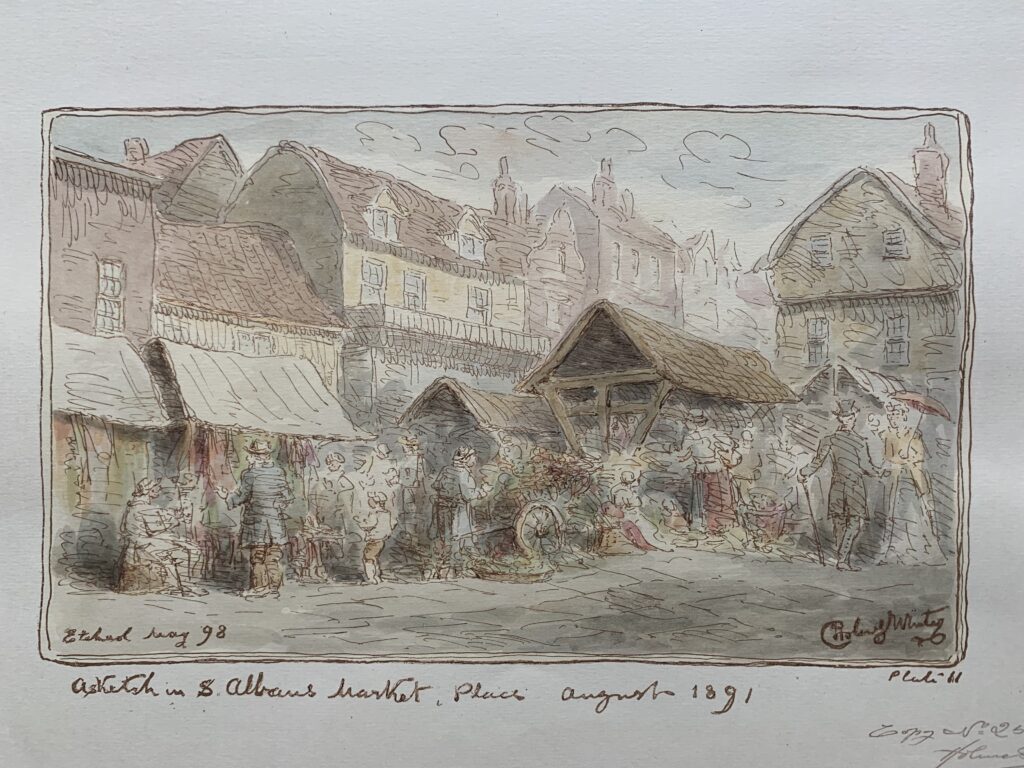 Etched May 98
Holmes Winter
A sketch in S. Albans Market, Place August 1891
Plate 11
Copy No: 2
Holmes